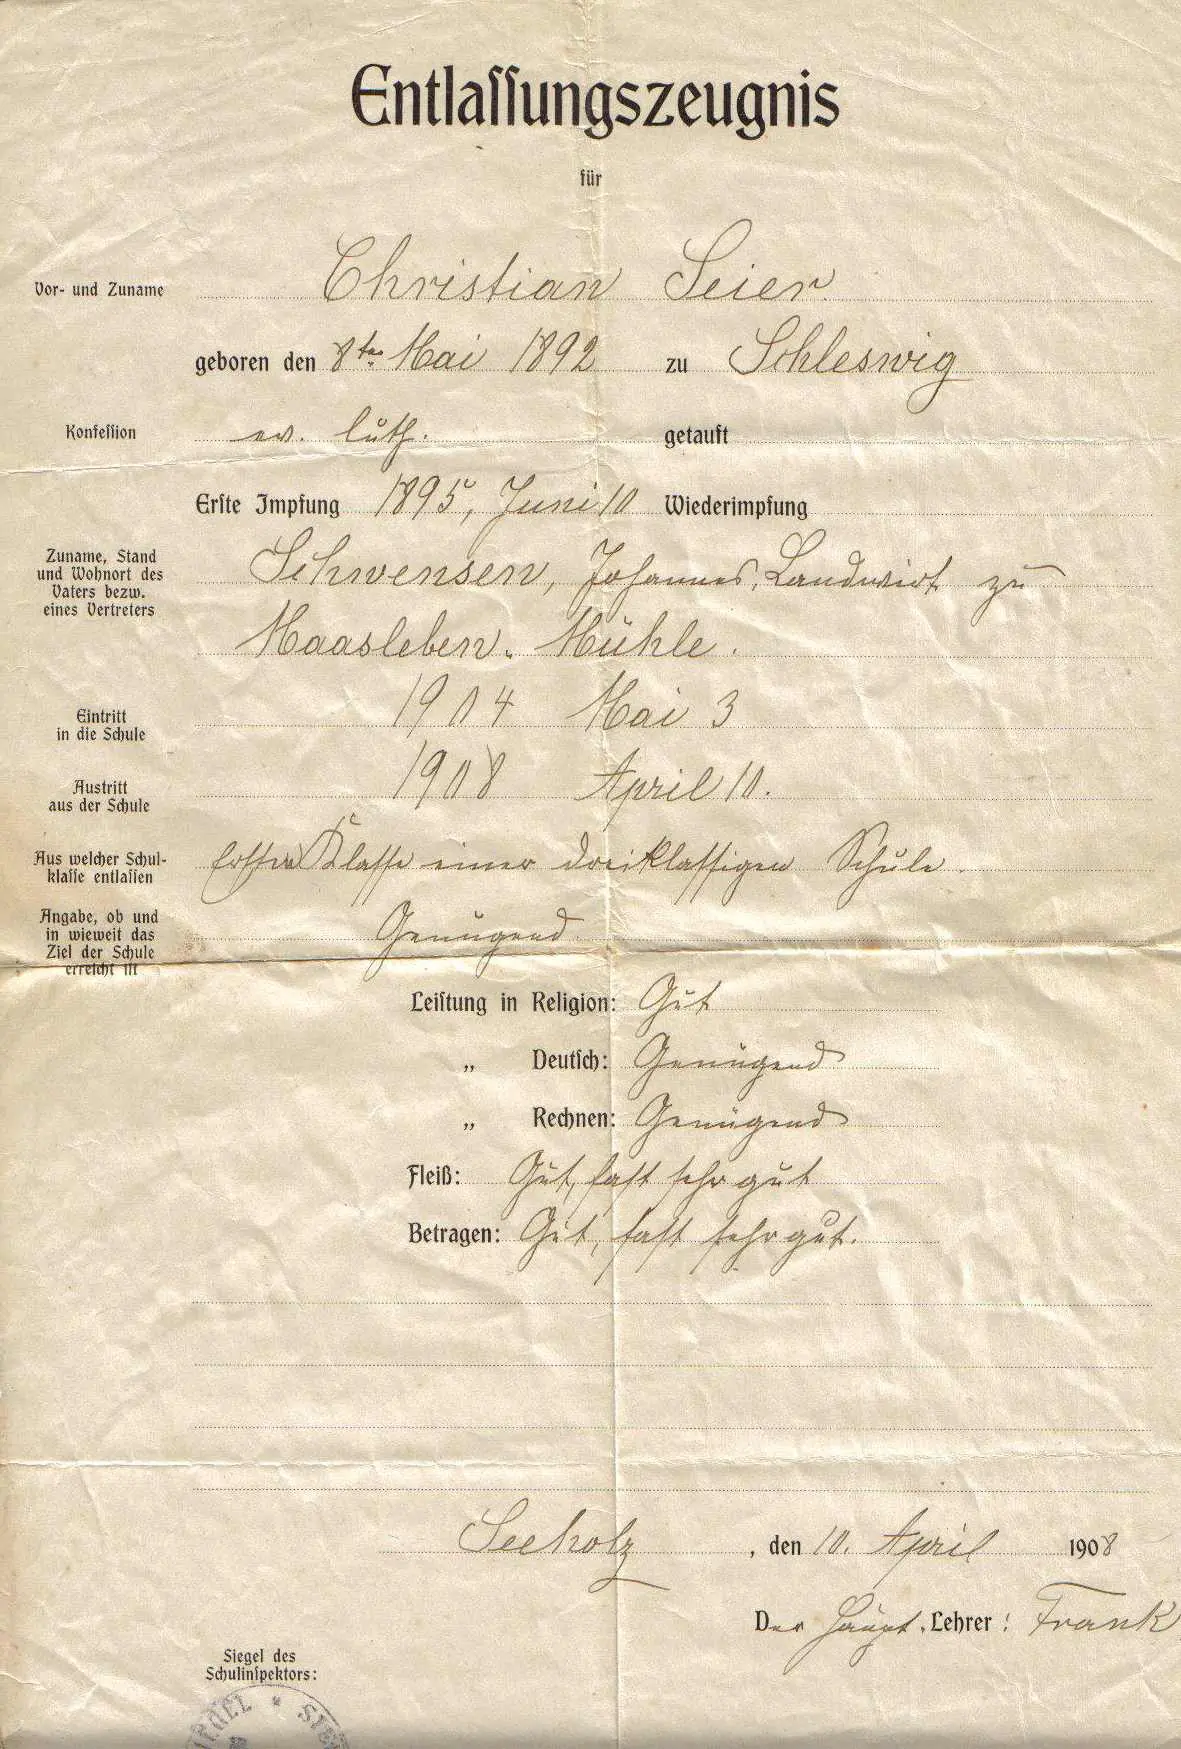 Entlaſſungszeugnis
für
Vor- und Zuname Christian Seier.
geboren den 8ten Mai 1892 zu Schleswig
Konfeſſion ev. luth. getauft
Erſte Impfung 1895, Juni 10 Wiederimpfung
Zuname, Stand
und Wohnort des
Vaters bezw.
eines Vertreters
Schwensen, Johannes, Landwirt zu
Maasleben. Mühle.
Eintritt
in die Schule
1904 Mai 3
Austritt
aus der Schule
1908 April 10.
Aus welcher Schul-
klaſſe entlaſſen
Erſten Klaſſe einer dreiklaſſigen Schule.
Angabe, ob und
in wieweit das
Ziel der Schule
erreicht iſt
Genügend.
Leiſtung in Religion: Gut
„ Deutſch: Genügend
„ Rechnen: Genügend
Fleiß: Gut, faſt ſehr gut
Betragen: Gut, faſt ſehr gut.
Seeholz, den 10. April 1908
Der Haupt-Lehrer: Frank
Siegel des
Schulinſpektors: